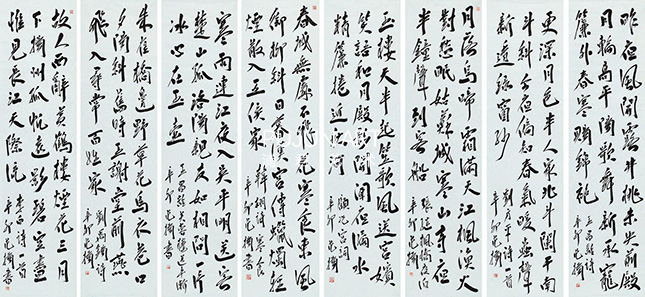 昨夜風開露井桃未央前殿
月輪高平陽歌舞新承寵
簾外春寒賜錦袍
王昌齡詩
辛卯
更深月色半人家北斗闌干南
斗斜今夜偏知春氣暖蟲聲
新透綠窗紗
劉方平詩一首
辛卯
月落烏啼霜滿天江楓漁火
對愁眠姑蘇城外寒山寺夜
半鐘聲到客船
張繼楓橋夜泊
辛卯
玉樓天半起笙歌風送宮嬪
笑語和月殿影開聞夜漏水
精簾捲近秋河
顧況宮詞
辛卯
春城無處不飛花寒食東風
御柳斜日暮漢宮傳蠟燭輕
煙散入五侯家
韓翃詩寒食
辛卯
寒雨連江夜入吳平明送客
楚山孤洛陽親友如相問一片
冰心在玉壺
王昌齡芙蓉樓送辛漸
辛卯
朱雀橋邊野草花烏衣巷口
夕陽斜舊時王謝堂前燕
飛入尋常百姓家
劉禹錫詩
辛卯
故人西辭黃鶴樓煙花三月
下揚州孤帆遠影碧空盡
惟見長江天際流
李白詩一首
辛卯